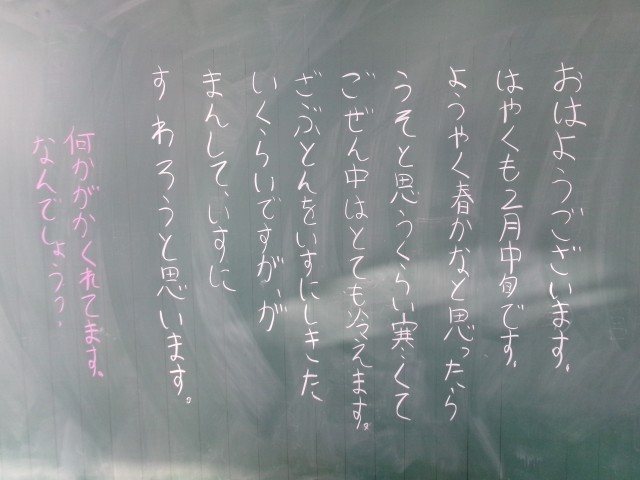 おはようございます。
はやくも2月中旬です。
ようやく春かなと思ったら
うそと思うくらい寒くて
ごぜん中はとても冷えます。
ざぶとんをいすにしきた
いくらいですが、が
まんして、いすに
すわろうと思います。
何かがかくれてます。
なんでしょうっ・